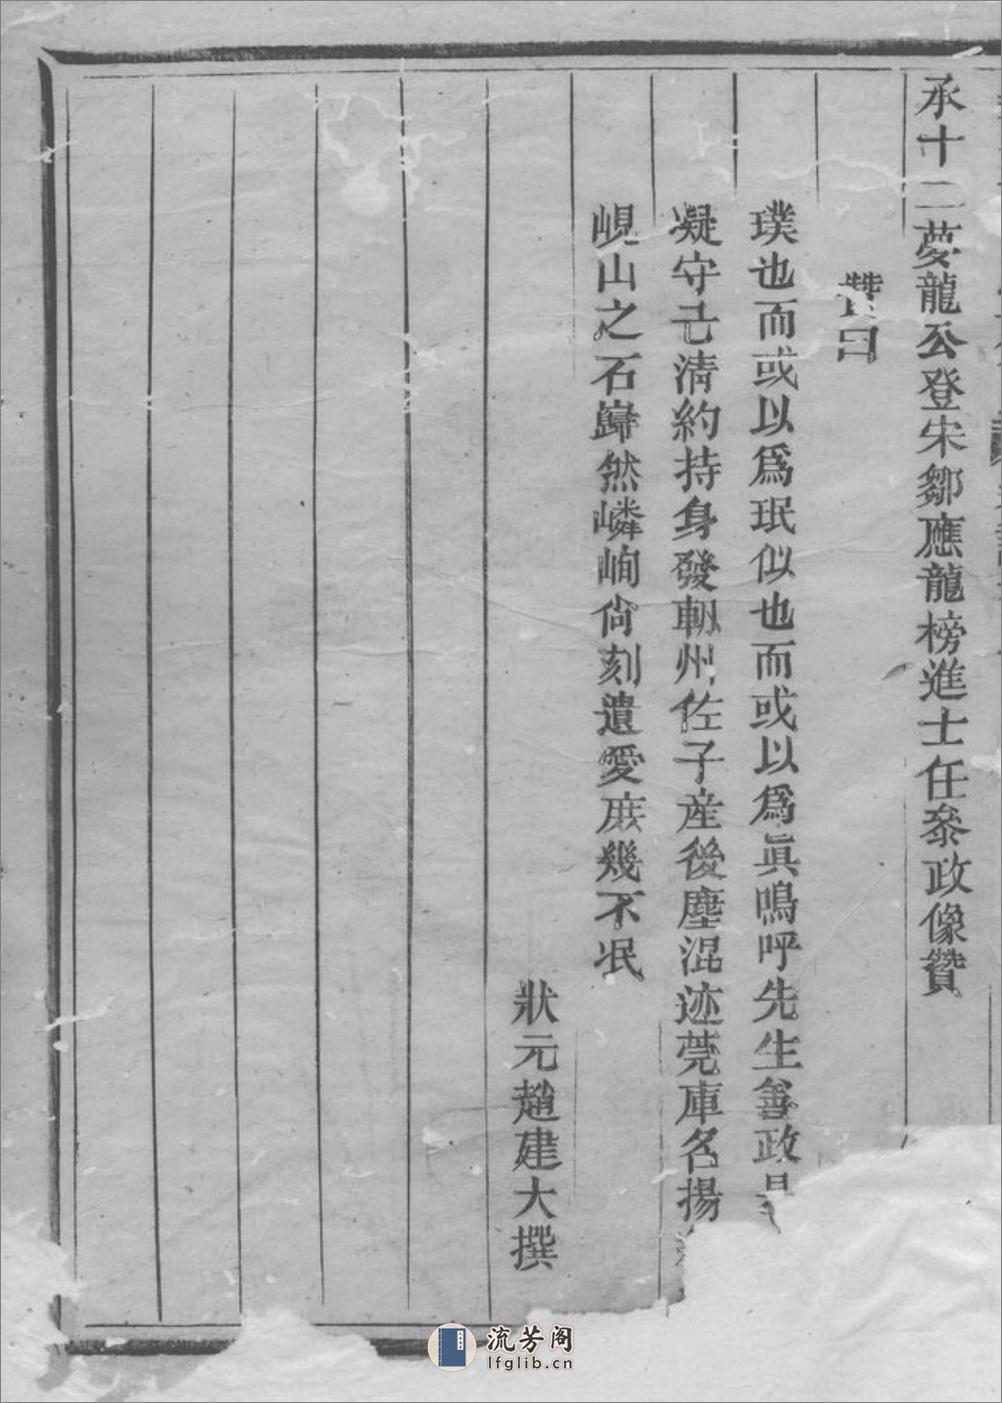 承十二夢龍公登宋鄒應龍榜進士任叅政像贊
贊曰
璞也而或以爲珉似也而或以爲眞鳴呼先生善政
凝守己清約持身發軔州佐子産後塵混迹莞庫名揚
峴山之石巋然嶙峋尙刻遺愛庶幾不泯
狀元趙建大撰
流芳阁
lfglib.cn